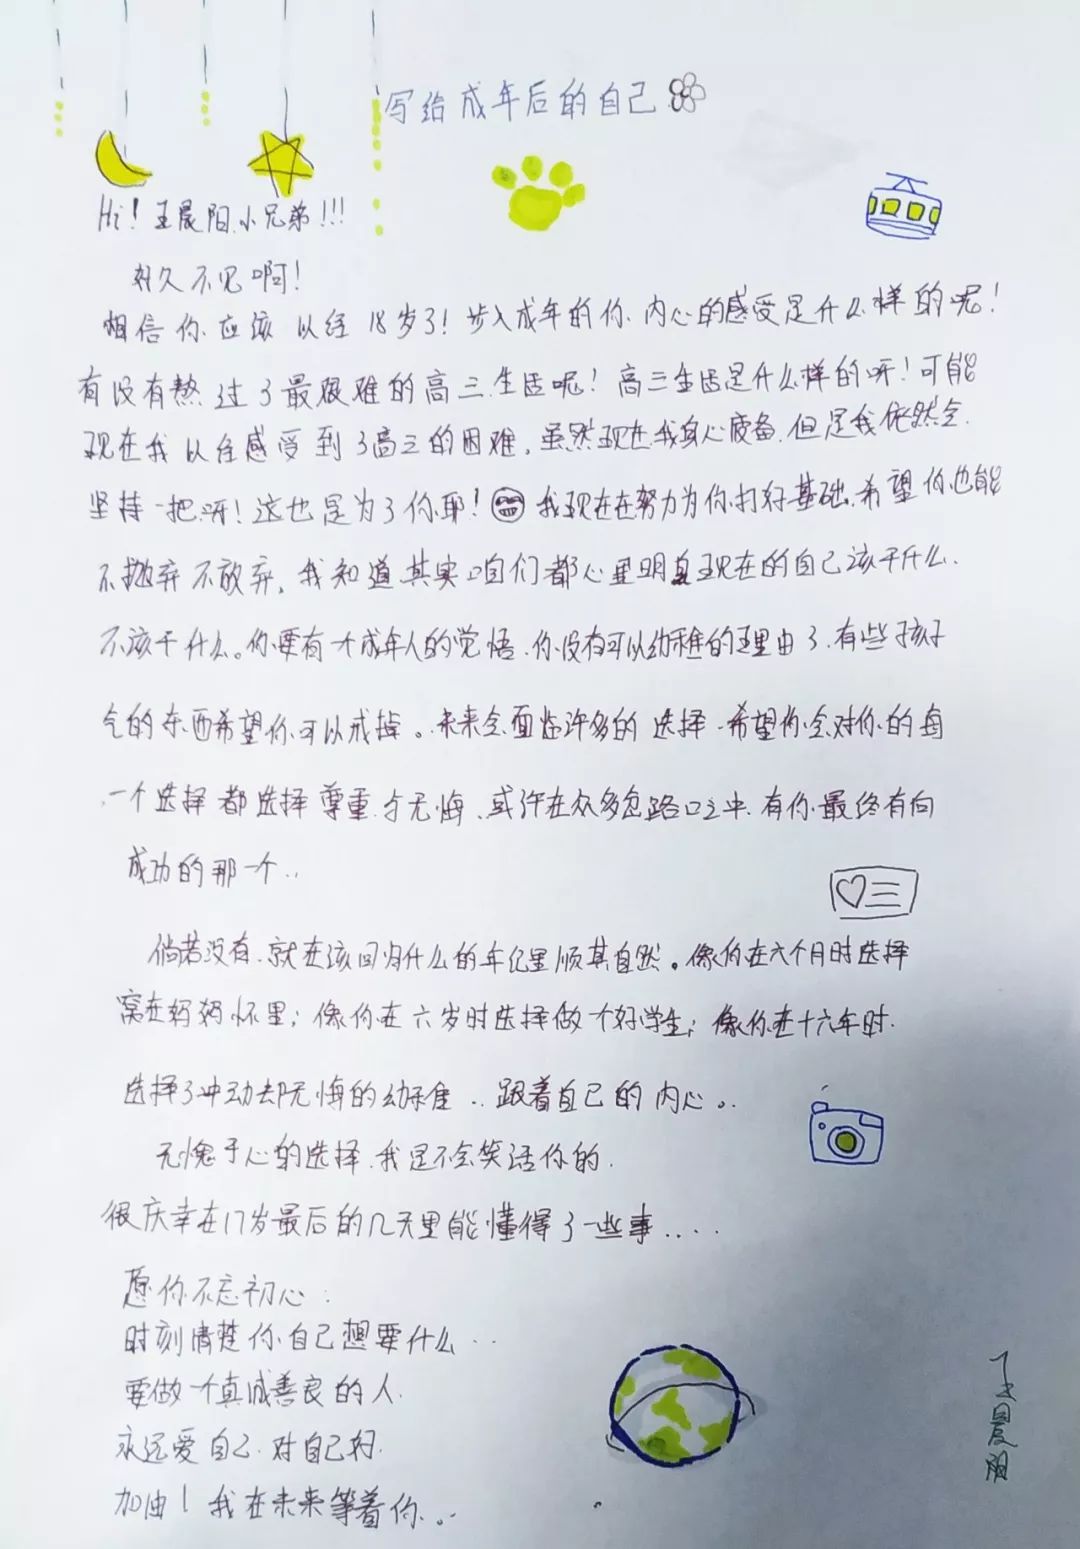 写给成年后的自己
Hi！王晨阳小兄弟！！！
好久不见啊！
相信你应该以经18岁了！步入成年的你内心的感受是什么样的呢！
有没有熬过了最艰难的高三生活呢！高三生活是什么样的呀！可能
现在我以在感受到了高三的困难，虽然现在我身心疲备，但是我依然会
坚持一把呀！这也是为了你耶！我现在在努力为你打好基础，希望你也能
不抛弃不放弃，我知道其实咱们都心里明白现在的自己该干什么、
不该干什么。你要有一个成年人的觉悟，你没有可以幼稚的理由了，有些孩子
气的东西希望你可以戒掉。未来会面临许多的选择，希望你会对你的每
一个选择都选择尊重与无悔、或许在众多岔路口之中，有你最终有向
成功的那一个..
倘若没有，就在该因为什么的年纪里顺其自然。像你在六个月时选择
窝在妈妈怀里；像你在六岁时选择做个好学生；像你在十六年时
选择了冲动却无悔的幼稚..跟着自己的内心。..
无愧于心的选择，我是不会笑话你的.
很庆幸在17岁最后的几天里能懂得了一些事....
愿你不忘初心：
时刻清楚你自己想要什么..
要做一个真诚善良的人.
永远爱自己.对自己好.
加油！我在未来等着你。..
王晨阳